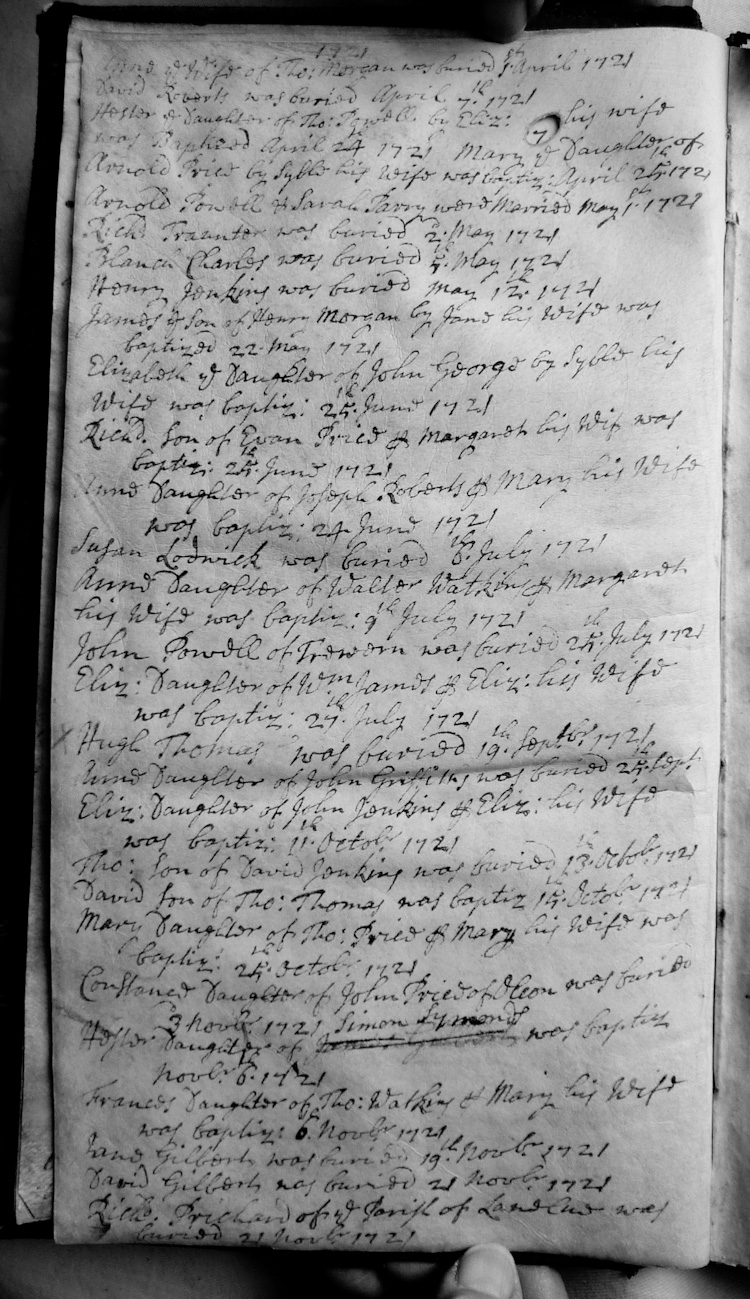 1721
Anne ye Wife of Tho: Morgan was buried 1st April 1721
David Roberts was buried April 7th 1721
Hester ye Daughter of Tho: Powell by Eliz: his wife
was Baptized April 24th 1721 Mary ye Daughter of
Arnold Price by Sylle his Wife was baptiz: April 25th 1721
Arnold Powell & Sarah Parry were Married May 1st 1721
Richd. Traunter was buried 2d May 1721
Blanch Charles was buried May 1721
Henry Jenkins was buried May 12th 1721
James ye Son of Henry Morgan by Jane his Wife was
baptized 22 May 1721
Elizabeth ye Daughter of John George by Sylle his
Wife was baptiz: June 1721
Richd. Son of Evan Price & Margaret his Wif was
baptiz: June 1721
Anne Daughter of Joseph Roberts & Mary his Wife
was baptiz: 24 June 1721
Susan Lodwick was buried 6th July 1721
Anne Daughter of Walter Watkins & Margaret
his Wife was baptiz: 9th July 1721
John Powell of Trewern was buried 25th July 1721
Eliz: Daughter of Wm James & Eliz: his Wife
was baptiz: 27th July 1721
Hugh Thomas was buried 19th Septbr 1721
Anne Daughter of John Griffiths was buried 25th Sept
Eliz: Daughter of John Jenkins & Eliz: his Wife
was baptiz: 11th Octobr 1721
Tho: Son of David Jenkins was buried 13th Octobr 1721
David Son of Tho: Thomas was baptiz 15th Octobr 1721
Mary Daughter of Tho: Price & Mary his Wife was
baptiz: 25th Octobr 1721
Constance Daughter of John Price of was buried
3d Novbr 1721 Simon Symonds
Hester Daughter of was baptiz
Novbr 6th 1721
Frances Daughter of Tho: Watkins & Mary his Wife
was baptiz: 6th Novbr 1721
Jane Gilbert was buried 19th Novbr 1721
David Gilbert was buried 21 Novbr 1721
Richd. Prichard of ye Parish of was
buried 21 Novbr 1721